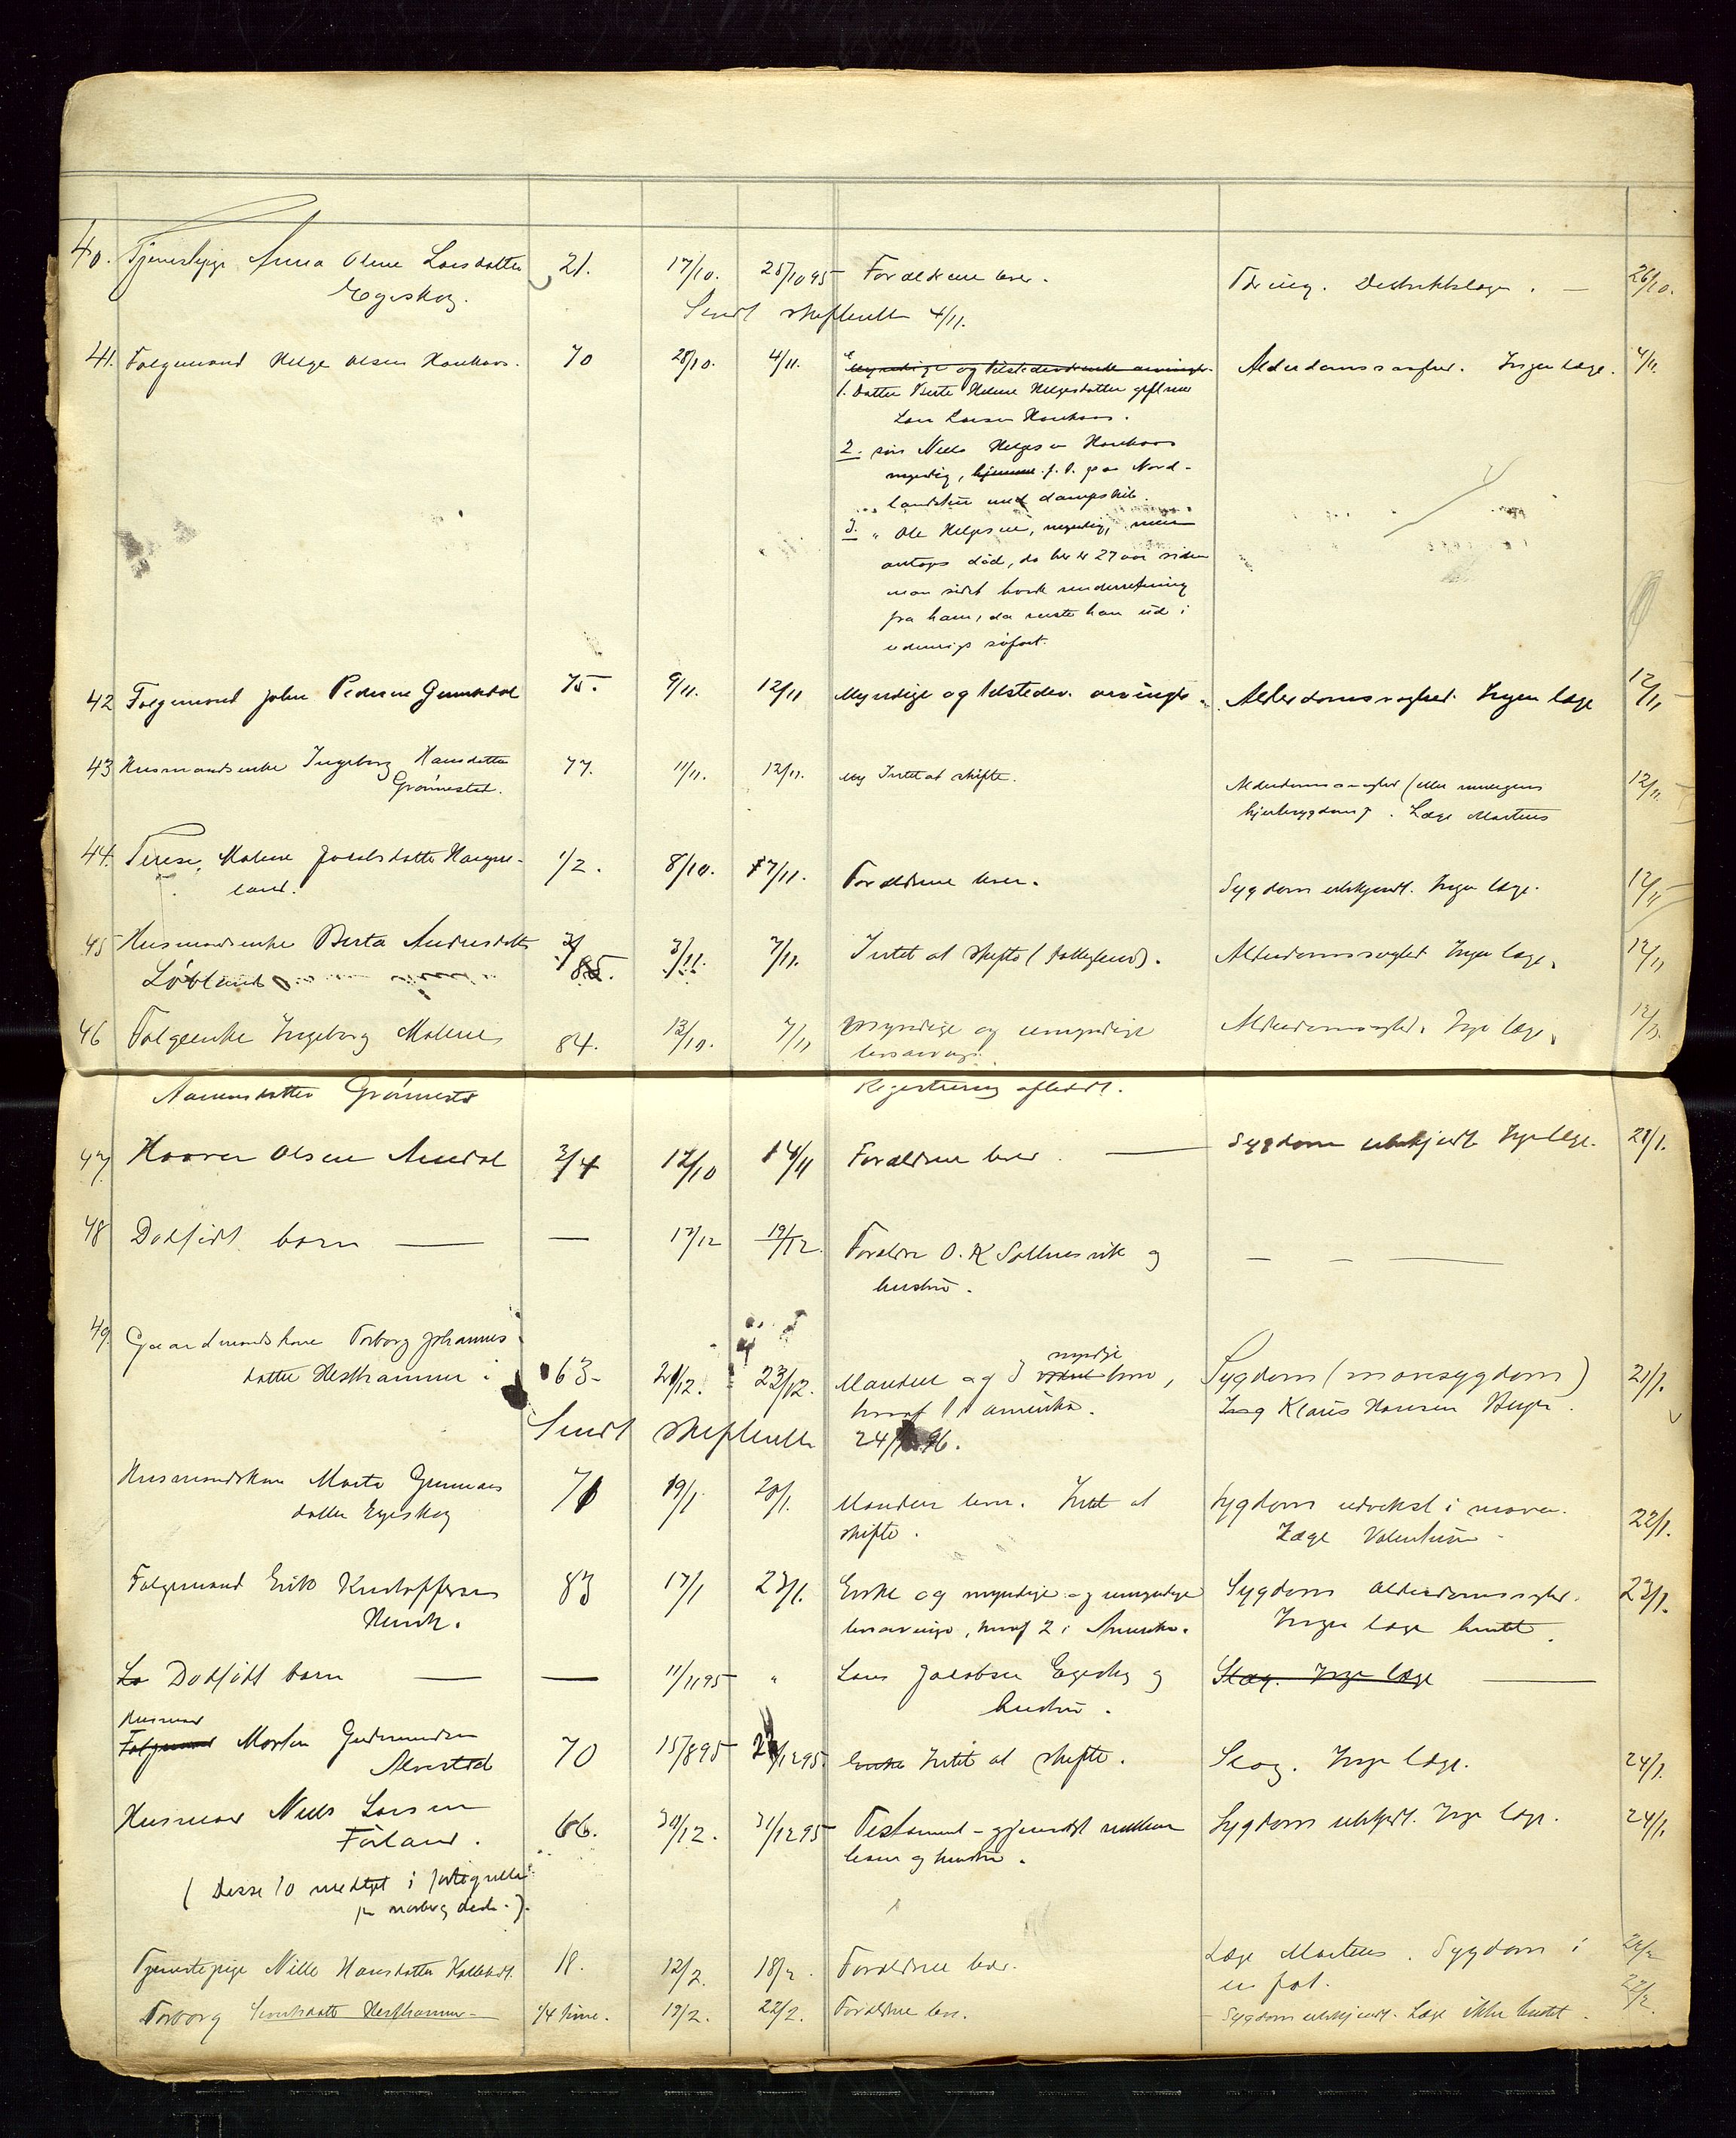 40. Tjenestepige Anna Oline Larsdatter 21. 17/10. 25/10 95 Forældrene lever. Tæring. Distriktslæge. — 26/10.
Egeskog.
Sendt skifteretten 4/11.
41. Følgemand Helge Olsen Haukaas. 70 28/10. 4/11. Myndige og tilstedeværende arvinger. Alderdomssvaghed. Ingen læge. 4/11
1. Datter Berte Helene Helgesdatter gift med
Lars Larsen Haukaas.
2. søn Nils Helgesen Haukaas
myndig, hjemme f. t. paa Nord-
landsture med dampskib.
3. " Ole Helgesen, myndig, men
antages død, da her er 27 aar siden
man sidst havde underretning
fra ham, da reiste han ud i
udenrigs søfart.
42 Følgemand John Pedersen 75. 9/11. 12/11 Myndige og tilstedev. arvinger. Alderdomssvaghed. Ingen læge 12/11
43 Husmandsenke Ingeborg Hansdatter 77. 11/11. 12/11. Intet at skifte.
Grønnestad. Alderdomssvaghed (eller muligens 12/11.
hjertesygdom). Læge Martens
44. Terese Malene Jacobsdatter 1/2. 8/10. 7/11. Forældrene lever. Sygdom ubekjendt. Ingen læge. 12/11
land.
45 Husmandsenke Berta Andersdatter 85. 3/11. 7/11. Intet at skifte (fattiglem). Alderdomssvaghed Ingen læge. 12/11
Løvland
46 Følgeenke Ingeborg Malene 84. 13/10. 7/11 Myndige og umyndige Alderdomssvaghed. Ingen læge. 12/11
livsarvinger.
Grønnestad Registrering afholdt.
47 Haaver Olsen 3/4 12/10 14/11 Forældrene lever. — Sygdom ubekjendt Ingen læge. 21/1.
48 Dødfødt barn — — 17/12 19/12. Forældre O. K. og — — —
hustru.
49. Gaardmandskone Torborg Johannes-
datter Hesthammer 63 21/12. 23/12. Manden og 3 myndige børn, Sygdom (mavesygdom) 21/1.
hvoraf 1 i Amerika. Klaus Hansen Bergen.
Sendt skifteretten 24/1 96.
Husmandskone Marta Gunnars 71 19/1 20/1. Manden lever. Intet at Sygdom udvekst i maven.
datter Egeskog skifte. Læge Valentin 22/1.
Følgemand Erik Kristoffersen 83 17/1 23/1. Enke og myndige og umyndige Sygdom alderdomssvaghed. 23/1.
livsarvinger, hvoraf 2 i Amerika. Ingen læge hentet.
La Dødfødt barn — — 11/11 95 " Lars Jacobsen Egeskog og Slag. Ingen læge —
hustru.
Husmand
Følgemand Morten Gudmundsen 70 15/8 95 27/12 95. Enke Intet at skifte. Slag. Ingen læge. 24/1.
Husmand Nils Larsen 66. 30/12. 31/12 95 Testament gjensidigt mellem Sygdom ubekjendt. Ingen læge. 24/1.
Førland. ham og hustru.
(Disse 10 medtaget i fortegnelse
)
Tjenestepige Nille Hansdatter 18. 12/2. 18/2. Forældrene lever. Læge Martens. Sygdom i 22/2
en fod.
Torborg Hesthammer 1/4 time. 19/2. 22/2. Forældrene lever. Sygdom ubekjendt. Læge ikke hentet. 22/2.